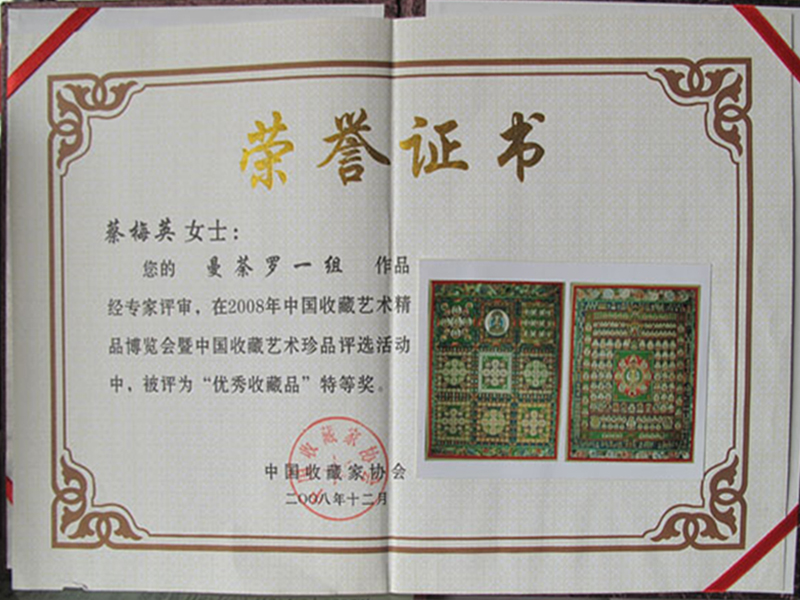 荣誉证书
蔡梅英 女士：
您的 曼荼罗一组 作品
经专家评审，在2008年中国收藏艺术精
品博览会暨中国收藏艺术珍品评选活动
中，被评为“优秀收藏品”特等奖。
中国收藏家协会
二〇〇八年十二月